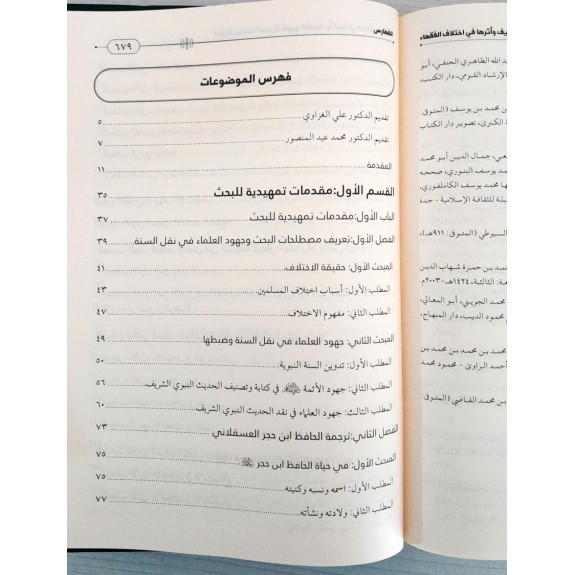 ـيف وأثرها في اختلاف الفقهاء
ـد الله الظاهري الحنفي، أبو
الإرشاد القومي، دار الكتب،
ـن محمد بن يوسف (المتوفى:
ـة الكبرى، تصوير دار الكتاب
ـعي، جمال الدين أبو محمد
ـد يوسف البنوري، صححه
ـها محمد يوسف الكاملفوري،
ـبلة للثقافة الإسلامية - جدة
السيوطي (المتوفى: ٩١١هـ)،
ـمد بن حمزة شهاب الدين
ـعة: الثالثة، ١٤٢٤هـ-٢٠٠٣م.
ـحمد الجويني، أبو المعالي،
ـم محمود الديب، دار المنهاج،
ـن محمد بن محمد بن محمد
أحمد الزاوى - محمود محمد
ـن محمد القاضي (المتوفى:
الفهارس
٦٧٩
فهرس الموضوعات
تقديم الدكتور علي الغزاوي ٥
تقديم الدكتور محمد عبد المنصور ٧
المقدمة ١١
القسم الأول: مقدمات تمهيدية للبحث ٣٥
الباب الأول: مقدمات تمهيدية للبحث ٣٧
الفصل الأول: تعريف مصطلحات البحث وجهود العلماء في نقل السنة ٣٩
المبحث الأول: حقيقة الاختلاف. ٤١
المطلب الأول: أسباب اختلاف المسلمين ٤٣
المطلب الثاني: مفهوم الاختلاف ٤٧
المبحث الثاني: جهود العلماء في نقل السنة وضبطها. ٤٩
المطلب الأول: تدوين السنة النبوية ٥٠
المطلب الثاني: جهود الأئمة في كتابة وتصنيف الحديث النبوي الشريف. ٥٦
المطلب الثالث: جهود العلماء في نقد الحديث النبوي الشريف ٦٠
الفصل الثاني: ترجمة الحافظ ابن حجر العسقلاني ٧٣
المبحث الأول: في حياة الحافظ ابن حجر ٧٥
المطلب الأول: اسمه ونسبه وكنيته ٧٥
المطلب الثاني: ولادته ونشأته ٧٧